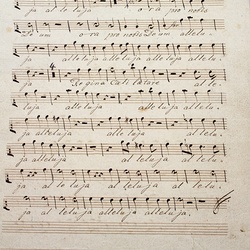 ja alleluja o ra pro nobis
De um o ra pro nobis De um allelu
ja alleluja alleluja allelu
ja Regina Coeli laetare al le
luja alleluja alleluja allelu
ja alleluja alleluja allelu
ja al le luja alleluja al le lu
ja al leluja alleluja alleluja.